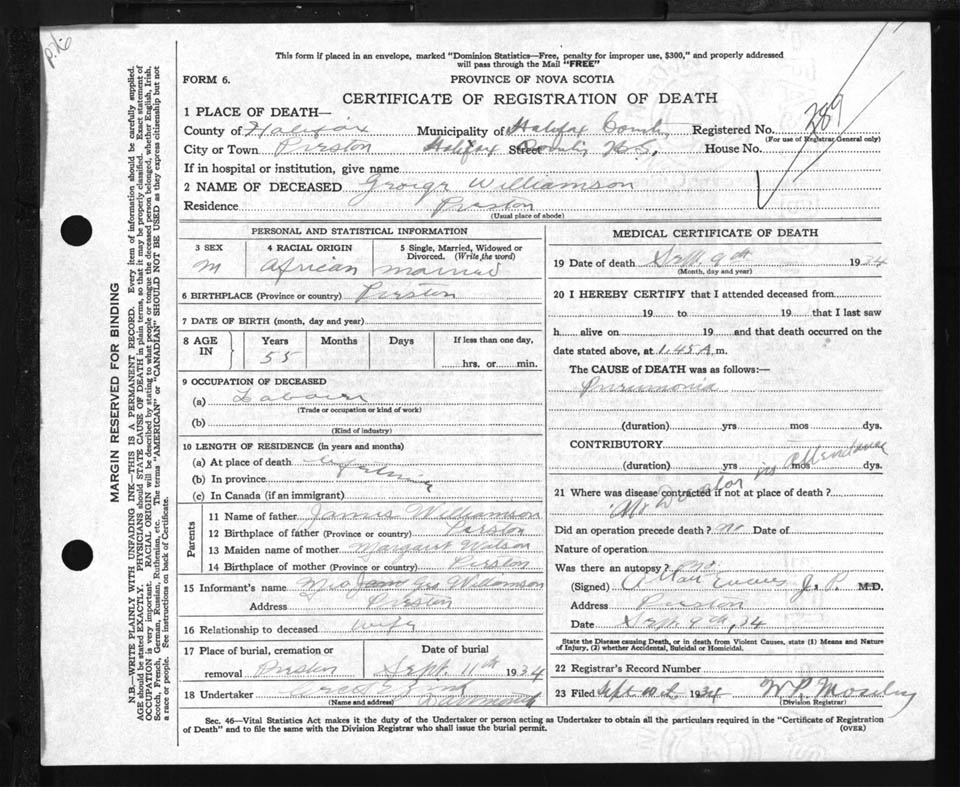 p26
This form if placed in an envelope, marked "Dominion Statistics—Free, penalty for improper use, $300," and properly addressed
will pass through the Mail "FREE"
FORM 6. PROVINCE OF NOVA SCOTIA
CERTIFICATE OF REGISTRATION OF DEATH
289
1 PLACE OF DEATH—
County of Halifax Municipality of Halifax County Registered No.
(For use of Registrar General only)
City or Town Preston Halifax Street County N.S. House No.
If in hospital or institution, give name
2 NAME OF DECEASED Groigr Williamson
Residence Preston
(Usual place of abode)
PERSONAL AND STATISTICAL INFORMATION
3 SEX 4 RACIAL ORIGIN 5 Single, Married, Widowed or
Divorced. (Write the word)
M African married
6 BIRTHPLACE (Province or country) Preston
7 DATE OF BIRTH (month, day and year)
8 AGE IN Years Months Days If less than one day,
55 hrs. or min.
9 OCCUPATION OF DECEASED
(a) Labourer
(Trade or occupation or kind of work)
(b)
(Kind of industry)
10 LENGTH OF RESIDENCE (in years and months)
(a) At place of death
(b) In province
(c) In Canada (if an immigrant)
Parents
11 Name of father James Williamson
12 Birthplace of father (Province or country) Preston
13 Maiden name of mother Margaret Wilson
14 Birthplace of mother (Province or country) Preston
15 Informant's name Mrs Jam Geo Williamson
Address Preston
16 Relationship to deceased wife
17 Place of burial, cremation or Date of burial
removal Preston Sept. 11th 1934
18 Undertaker
(Name and address) Dartmouth
MEDICAL CERTIFICATE OF DEATH
19 Date of death Sept. 9th 1934
(Month, day and year)
20 I HEREBY CERTIFY that I attended deceased from
19 to 19 that I last saw
h alive on 19 and that death occurred on the
date stated above, at 1.45 A m.
The CAUSE of DEATH was as follows:—
Pneumonia
(duration) yrs mos dys.
CONTRIBUTORY
(duration) yrs mos dys.
No Doctor in Attendance
21 Where was disease contracted if not at place of death?
Did an operation precede death? no Date of
Nature of operation
Was there an autopsy? no
(Signed) Allan Evans J. P. M.D.
Address Preston
Date Sept. 9th, 34
State the Disease causing Death, or in death from Violent Causes, state (1) Means and Nature
of Injury, (2) whether Accidental, Suicidal or Homicidal.
22 Registrar's Record Number
23 Filed Sept 1934
(Division Registrar)
Sec. 46—Vital Statistics Act makes it the duty of the Undertaker or person acting as Undertaker to obtain all the particulars required in the "Certificate of Registration
of Death" and to file the same with the Division Registrar who shall issue the burial permit. (OVER)
MARGIN RESERVED FOR BINDING
N.B.—WRITE PLAINLY WITH UNFADING INK—THIS IS A PERMANENT RECORD. Every item of information should be carefully supplied.
AGE should be stated EXACTLY. PHYSICIANS should STATE CAUSE OF DEATH in plain terms, so that it may be properly classified. Exact statement of
OCCUPATION is very important. RACIAL ORIGIN will be described by stating to what people or tongue the deceased person belonged, whether English, Irish,
Scotch, French, German, Russian, Ruthenian, etc. The terms "AMERICAN" or "CANADIAN" SHOULD NOT BE USED as they express citizenship but not
a race or people. See instructions on back of Certificate.